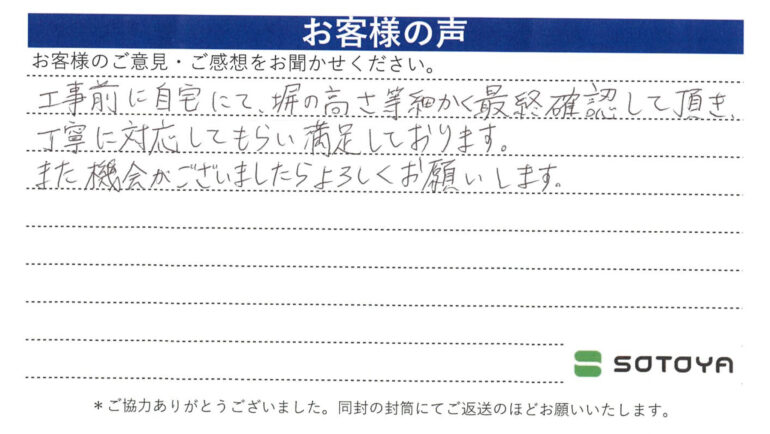 お客様の声
お客様のご意見・ご感想をお聞かせください。
工事前に自宅にて、塀の高さ等細かく最終確認して頂き、
丁寧に対応してもらい満足しております。
また機会がございましたらよろしくお願いします。
SOTOYA
＊ご協力ありがとうございました。同封の封筒にてご返送のほどお願いいたします。